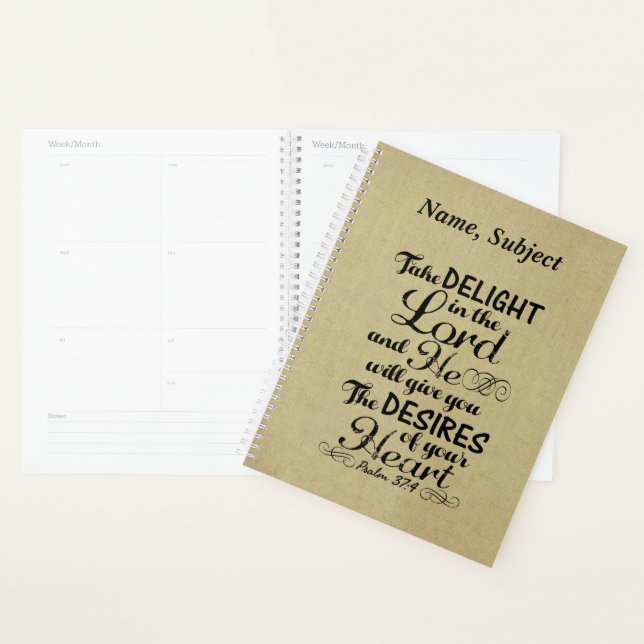 Week/Month:
Week/Month:
mon
tues
wed
thu
fri
sat
sun
Notes:
Name, Subject
Take DELIGHT
in the
Lord
and He
will give you
The DESIRES
of your
Heart
Psalm 37:4